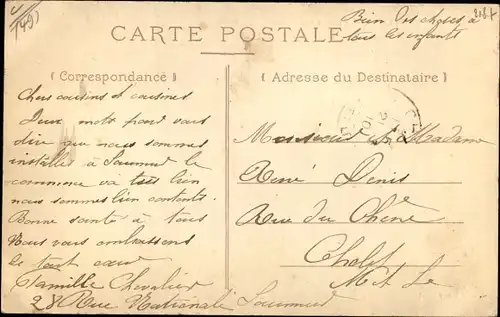 Bien des choses à
tous les enfants
CARTE POSTALE
( Correspondance )
Chers cousins et cousines
Deux mots pour vous
dire que nous sommes
installés à Saumur le
commerce va très bien
nous sommes bien contents.
Bonne santé à tous
Nous vous embrassons
de tout cœur
Famille Chevalier
28 Rue Nationale Saumur
( Adresse du Destinataire )
Monsieur et Madame
René Denis
Rue du Chêne
Cholet
M et Le